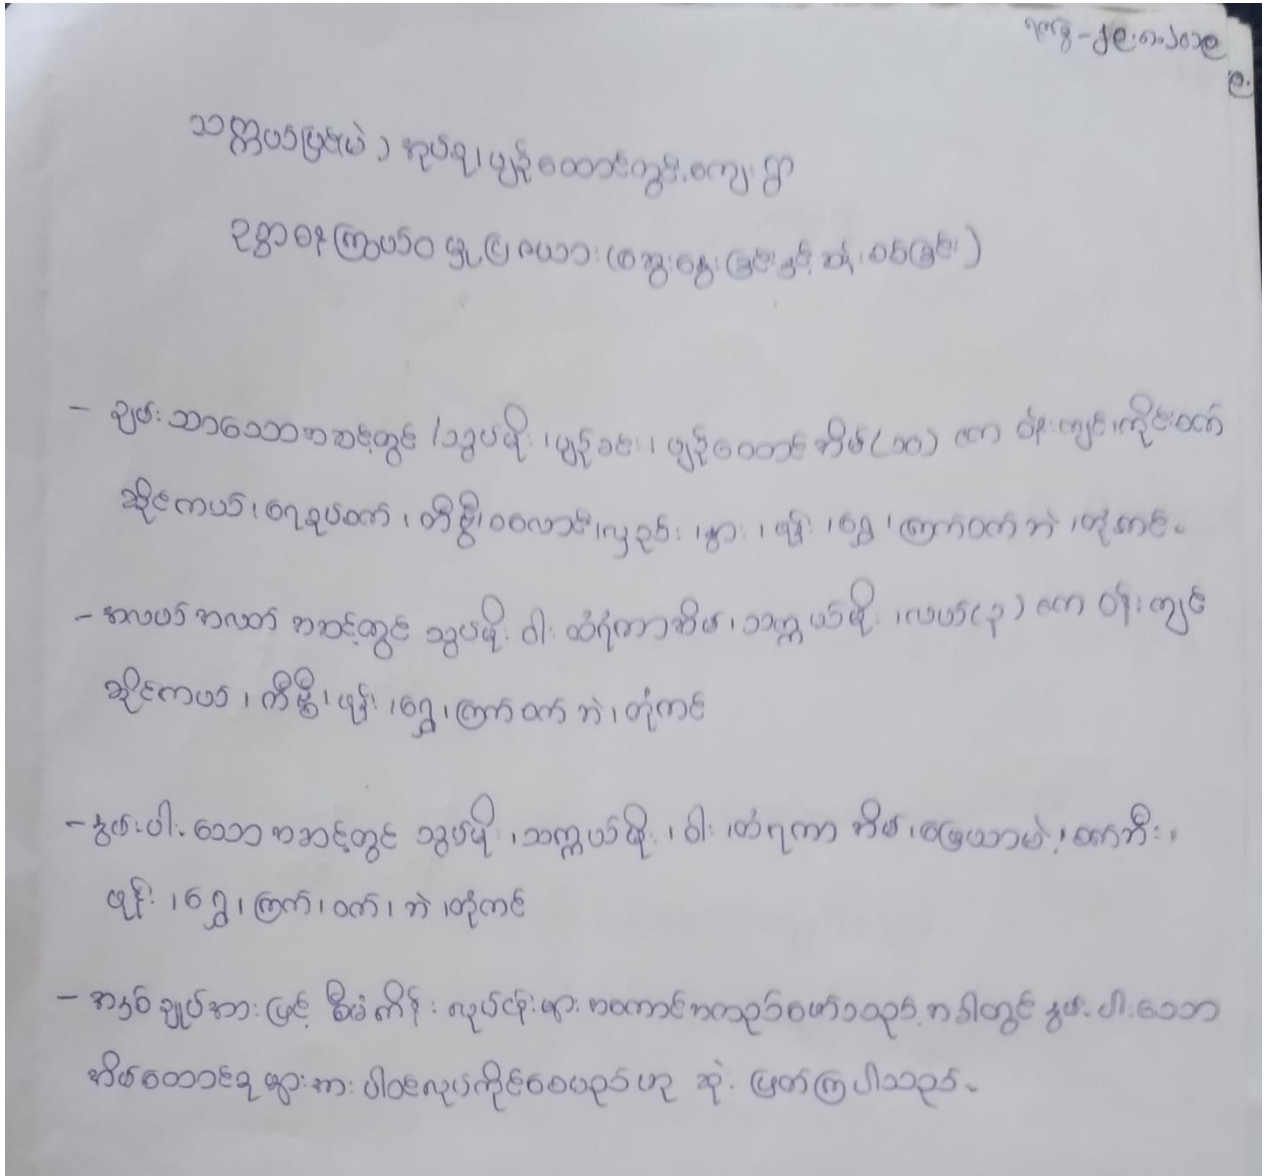 ရက်စွဲ - ၂၉.၈.၂၀၁၉
သက္ကယ်ပြင်မဲ ၊ အုပ်စု၊ ပျဉ်ထောင်တွင်းကျေးရွာ
ဥစ္စာဓနကြွယ်ဝမှုပြဇယား (ဆွေးနွေးခြင်းနှင့် ဆန်းစစ်ခြင်း)
- ချမ်းသာသောအဆင့်တွင် ၊ သွပ်မိုး ၊ ပျဉ်ခင်း ၊ ပျဉ်ထောင်အိမ် (၁၀) ဧက ဝန်းကျင် ၊ ကိုင်းဝက်
ဆိုင်ကယ် ၊ ရေစုပ်စက် ၊ တီဗွီ ၊ စလောင်း ၊ လှည်း ၊ နွား ၊ ဖုန်း ၊ ရွှေ ၊ ကြက် ဝက် ဘဲ ၊ တုံကင် ။
- အလယ် အလတ် အဆင့်တွင် သွပ်မိုး ဝါး ထရံကာအိမ် ၊ သက္ကယ်မိုး ၊ လယ် (၃) ဧက ဝန်းကျင်
ဆိုင်ကယ် ၊ တီဗွီ ၊ ဖုန်း ၊ ရွှေ ၊ ကြက် ဝက် ဘဲ ၊ တုံကင်
- နွမ်းပါးသော အဆင့်တွင် သွပ်မိုး ၊ သက္ကယ်မိုး ၊ ဝါး ၊ ထရံကာ အိမ် ၊ မြေယာမဲ့ ၊ စက်ဘီး ၊
ဖုန်း ၊ ရွှေ ၊ ကြက် ၊ ဝက် ၊ ဘဲ ၊ တုံကင်
- အနှစ်ချုပ်အားဖြင့် စီမံကိန်း လုပ်ငန်းများ အကောင်အထည်ဖော်သည့် အခါတွင် နွမ်းပါးသော
အိမ်ထောင်စုများအား ပါဝင်လုပ်ကိုင်စေမည်ဟု ဆုံးဖြတ်ကြပါသည် ။